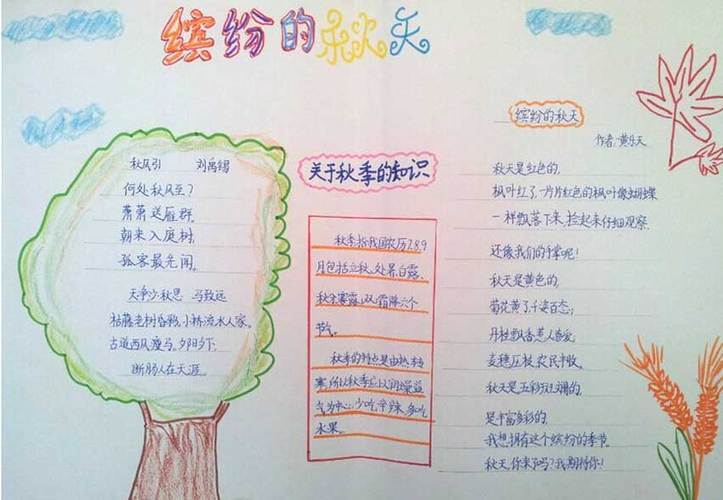 缤纷的秋天
秋风引 刘禹锡
何处秋风至?
萧萧送雁群.
朝来入庭树,
孤客最先闻.
天净沙·秋思 马致远
枯藤老树昏鸦,小桥流水人家.
古道西风瘦马.夕阳西下.
断肠人在天涯.
关于秋季的知识
秋季指我国农历7.8.9
月包括立秋、处暑、白露、
秋分、寒露、霜降六个
节气。
秋季的特点是由热转
寒,所以秋季应以润燥益
气为中心,少吃辛辣,多吃
水果。
缤纷的秋天
作者:黄乐天
秋天是红色的,
枫叶红了,一片片红色的枫叶像蝴蝶
一样飘落下来,捡起来仔细观察
还像我们的手掌呢!
秋天是黄色的,
菊花黄了,千姿百态;
丹桂飘香惹人喜爱;
麦穗压枝,农民丰收。
秋天是五彩斑斓的,
是丰富多彩的,
我想拥有这个缤纷的季节.
秋天,你来了吗?我期待你!